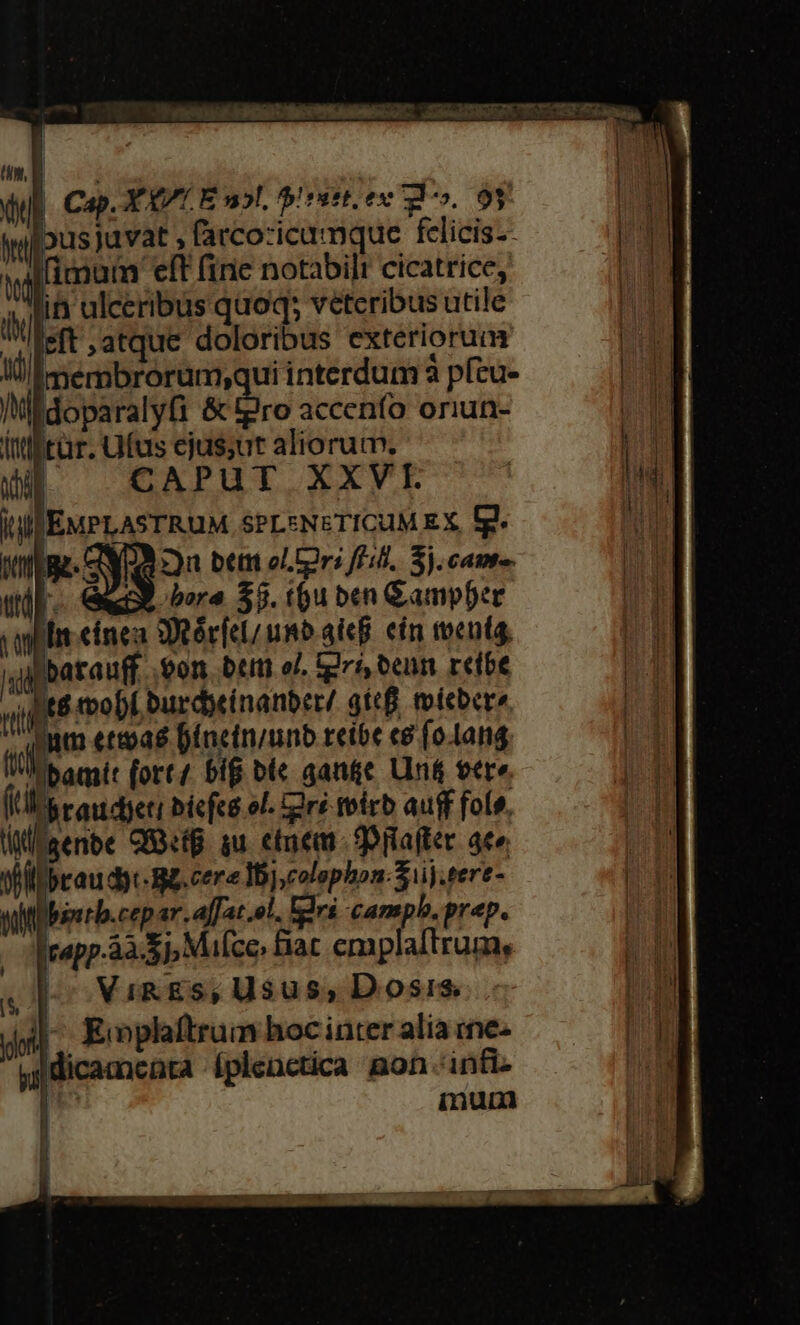 Cap. XXVI. Empl. splenet. ex ☿o. 95
bus juvat, sarcoticumque felicis-
simum est sine notabili cicatrice,
in ulceribus quoq; veteribus utile
est, atque doloribus exteriorum
membrorum, qui interdum à pseu-
doparalysi & ☿ro accenso oriun-
tur. Usus ejus, ut aliorum.
CAPUT XXVI.
EMPLASTRUM SPLENETICUM EX ☿.
℞. Von dem ol. ☿ri ℥j. cam-
phoræ ℥ß. thu den Campher
in einen Mörsel / und gieß ein wenig
darauff von dem ol. ☿ri, denn reibe
es wohl durcheinander / gieß wieder-
um etwas hinein / und reibe es so lang
damit fort / biß die gantze Untz ver-
brauchet; dieses ol. ☿ri wird auff fol-
gende Weiß zu einem Pflaster ge-
braucht. ℞. ceræ ℔j, colophon. ℥iij. tere-
binth. cepar. assat. ol. ☿ri camph. præp.
rapp. āā ℥j, Misce, fiat emplastrum.
VIRES, USUS, DOSIS.
Emplastrum hoc inter alia me-
dicamenta splenetica non infi-
mum